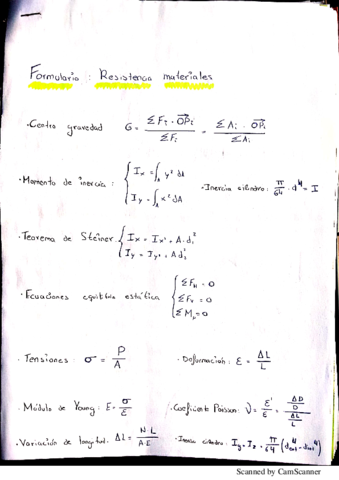 Formulario : Resistencia materiales
· Centro gravedad G = Σ Fi · OPi / Σ Fi = Σ Ai · OPi / Σ Ai
· Momento de inercia : { Ix = ∫A y² dA
Iy = ∫A x² dA
· Inercia cilindro : π/64 · d⁴ = I
· Teorema de Steiner { Ix = Ix' + A · di²
Iy = Iy' + A di²
· Ecuaciones equilibrio estática { ΣFH = 0
ΣFV = 0
ΣM = 0
· Tensiones : σ = P / A
· Deformación : ε = ΔL / L
· Módulo de Young : E = σ / ε
· Coeficiente Poisson : ν = ε' / ε = (ΔD / D) / (ΔL / L)
· Variación de longitud : ΔL = N L / A E
· Inercia cilindro : Iy = Iz = π/64 (d⁴ext - dint⁴)
Scanned by CamScanner